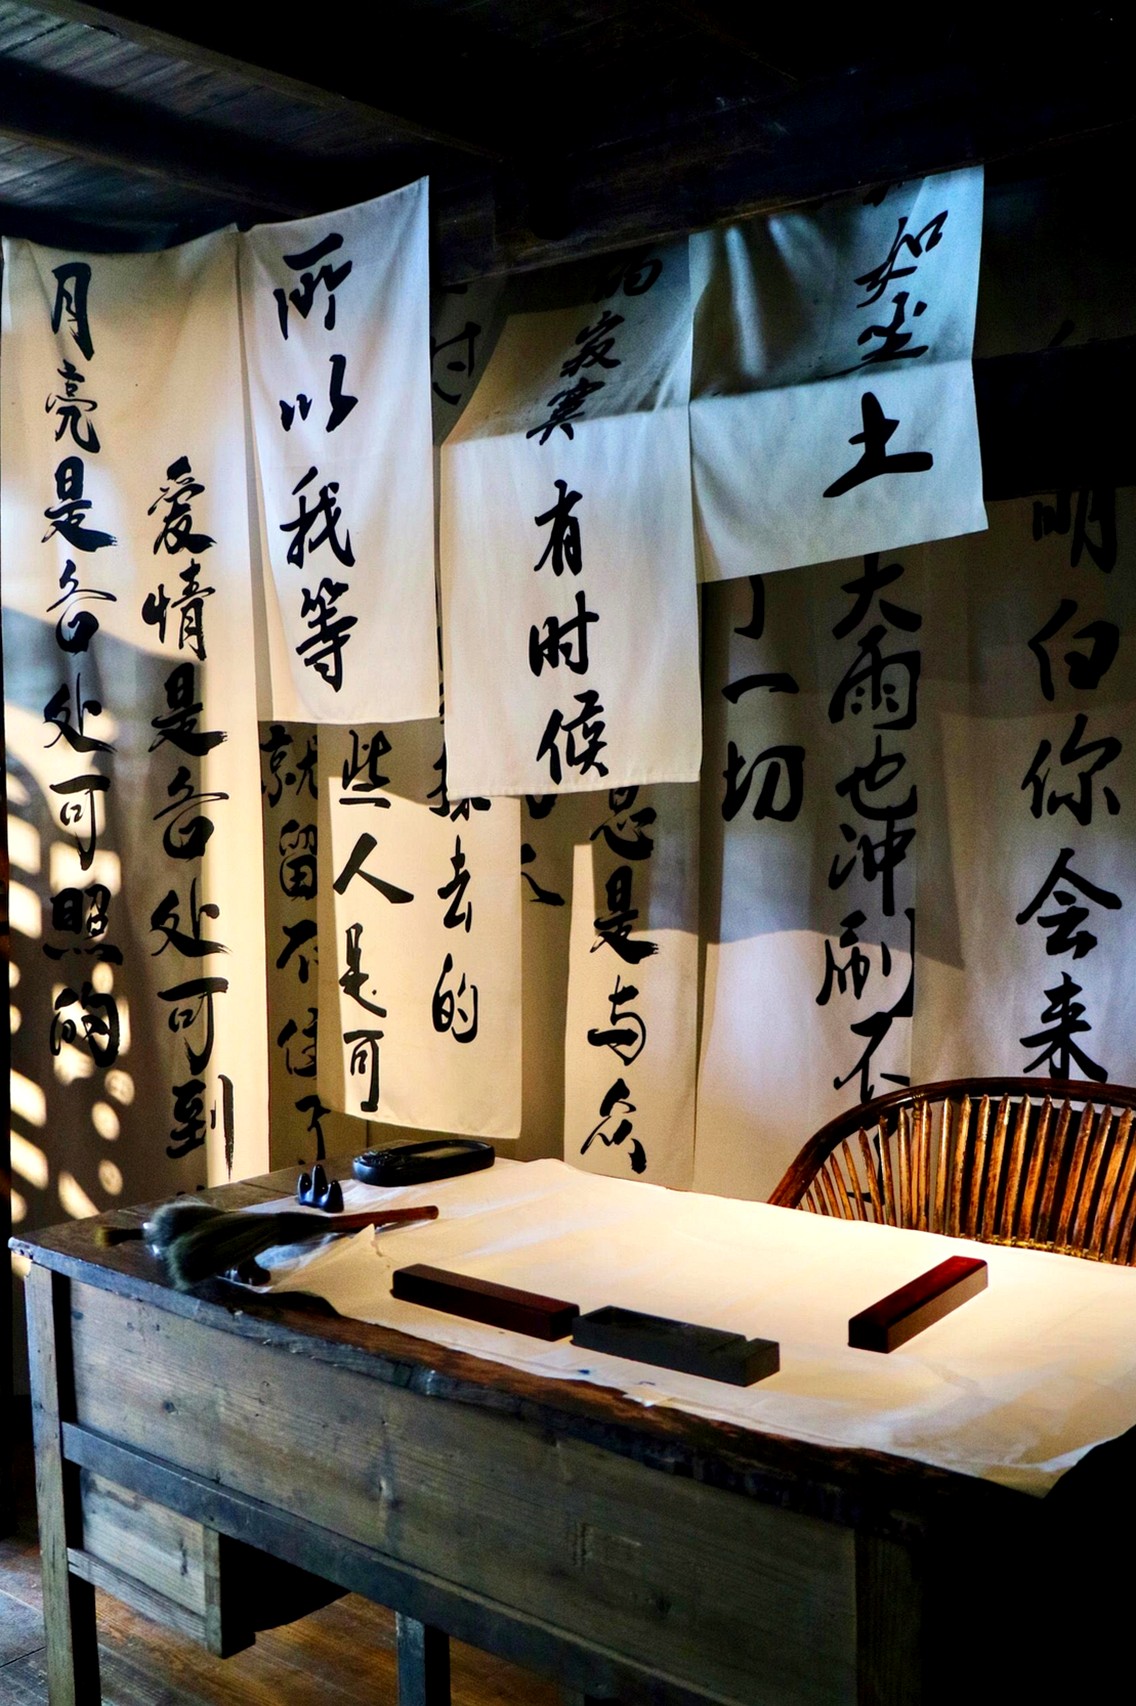 月亮是各处可照的
爱情是各处可到
所以我等
就留不住了
些人是可
去的
寂寞有时候
息是与众
了一切
如尘土
大雨也冲刷不
明白你会来